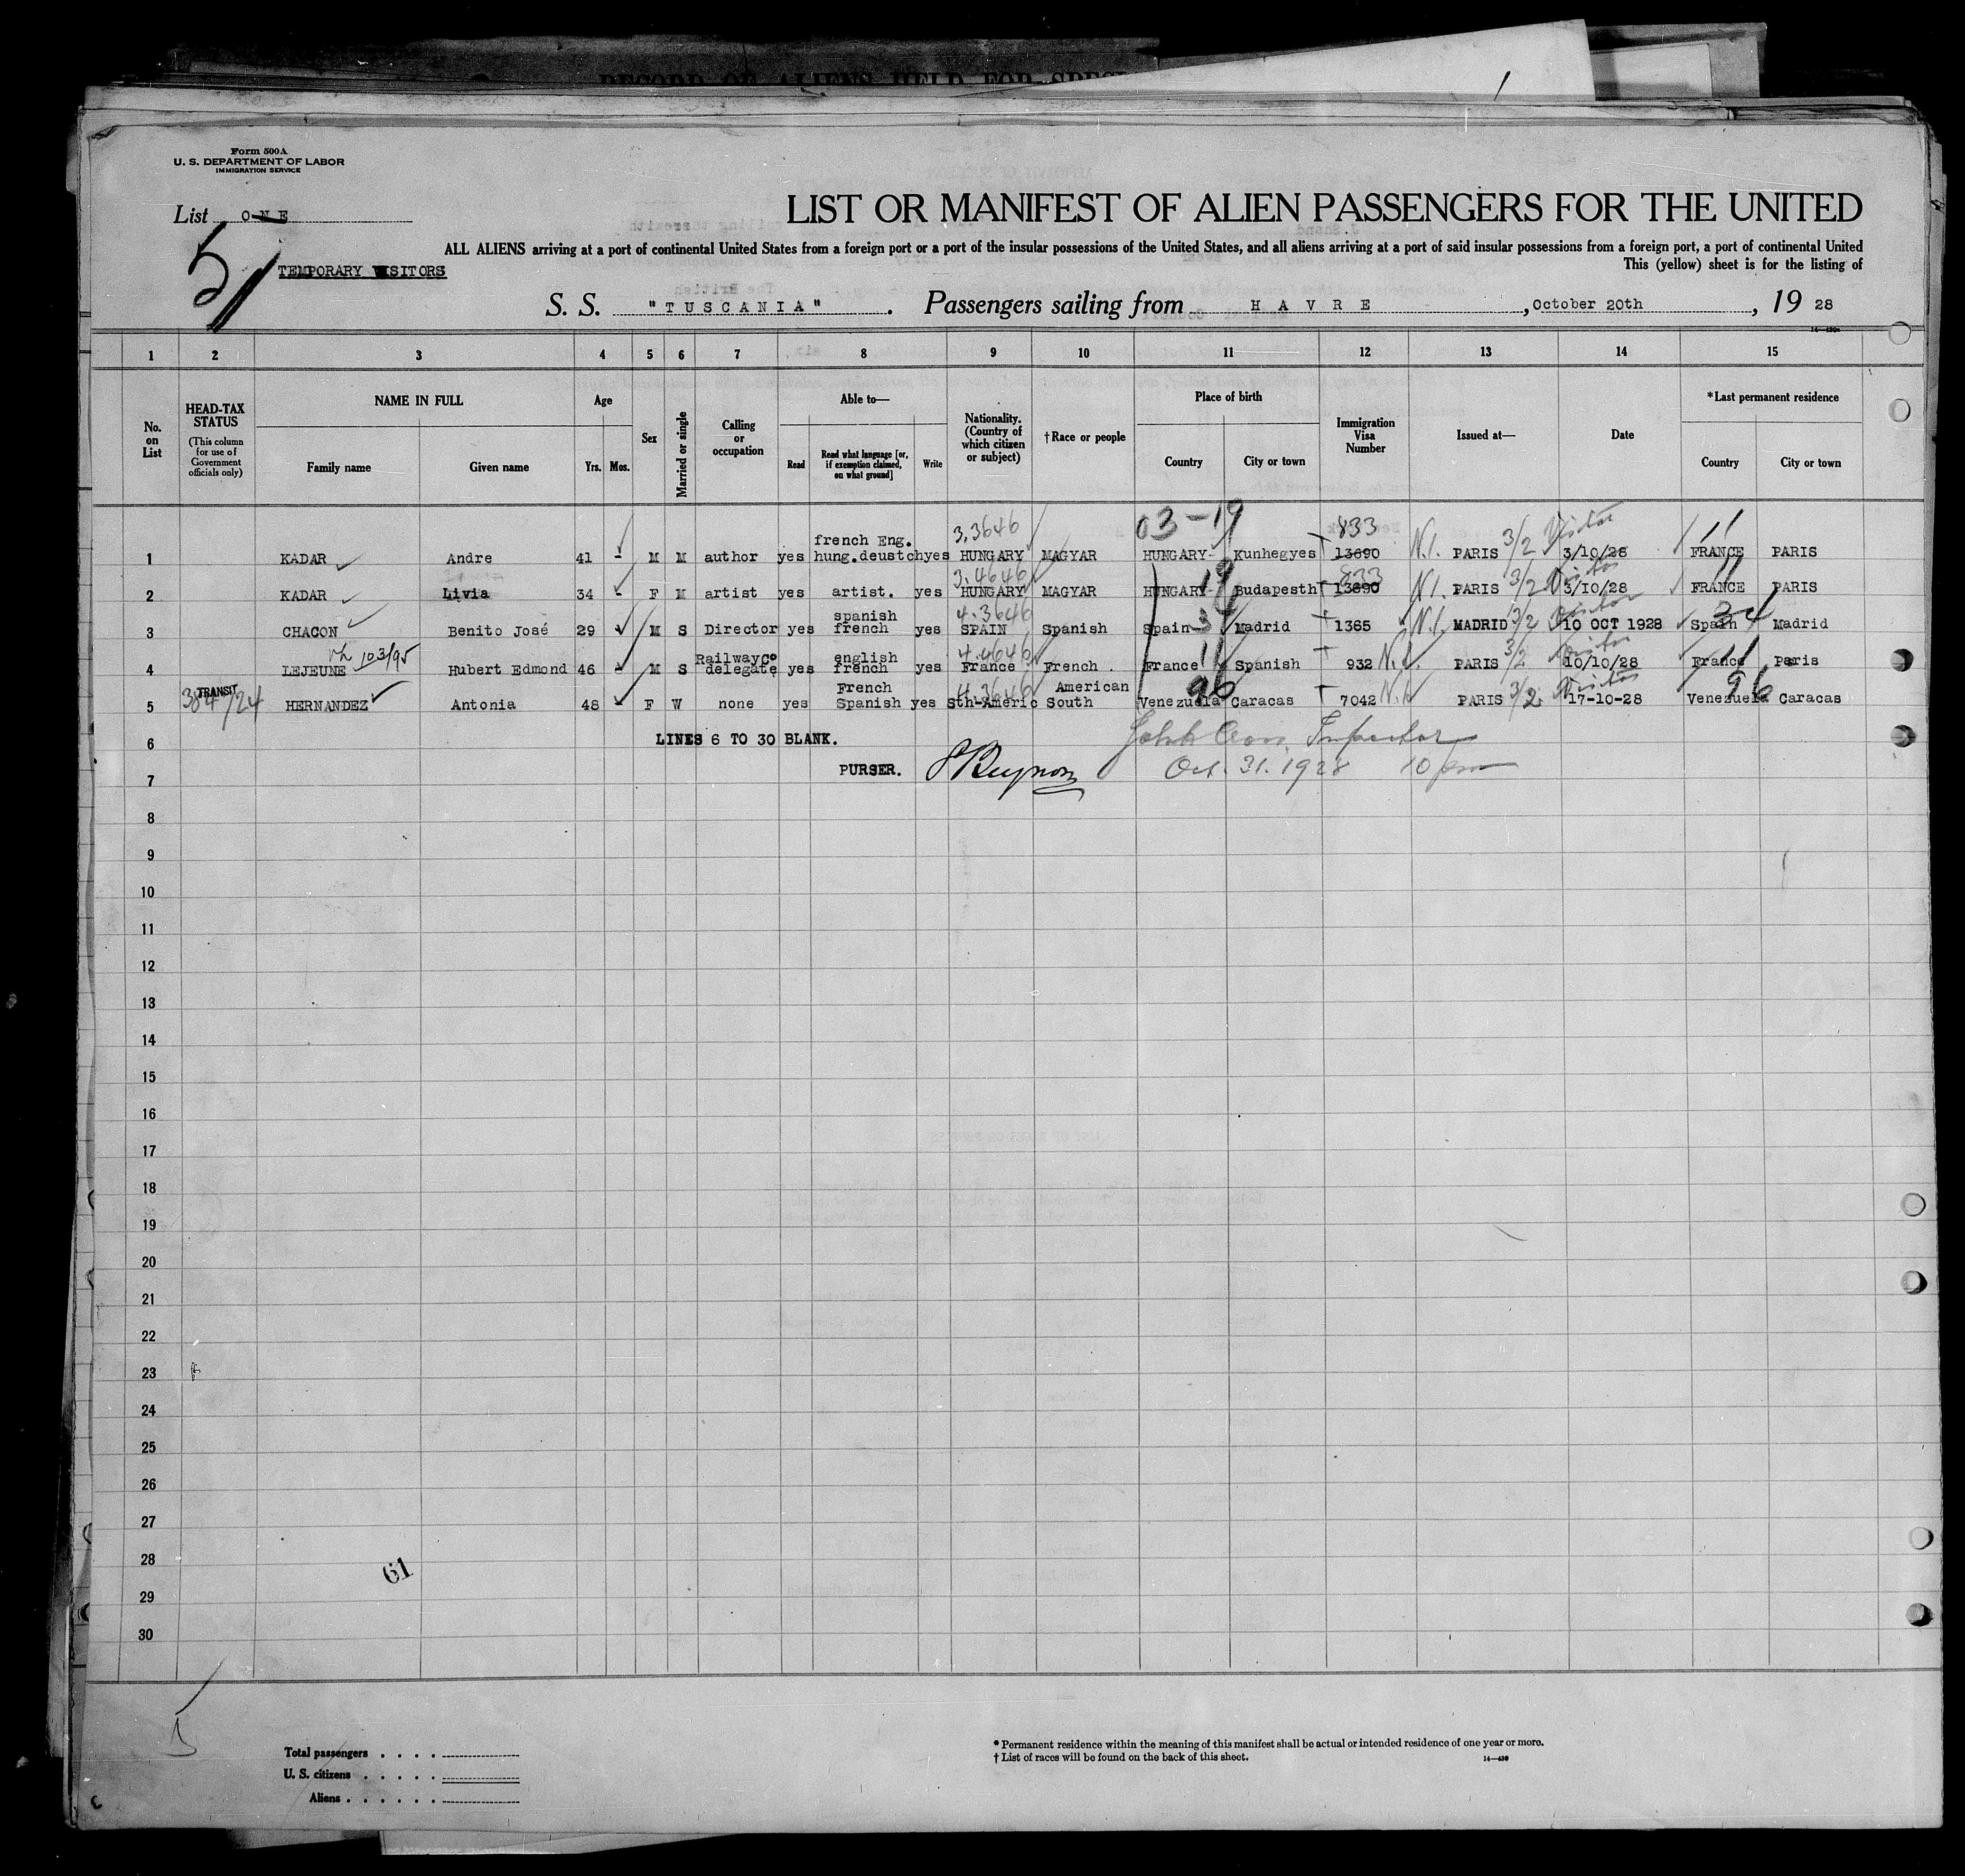 RECORD OF ALIENS HELD FOR
Form 500A
U. S. DEPARTMENT OF LABOR
IMMIGRATION SERVICE
List ONE
51
TEMPORARY VISITORS
LIST OR MANIFEST OF ALIEN PASSENGERS FOR THE UNITED
ALL ALIENS arriving at a port of continental United States from a foreign port or a port of the insular possessions of the United States, and all aliens arriving at a port of said insular possessions from a foreign port, a port of continental United
This (yellow) sheet is for the listing of
S. S. "TUSCANIA". Passengers sailing from HAVRE, October 20th, 19 28
14—430
1 2 3 4 5 6 7 8 9 10 11 12 13 14 15
No. on List
HEAD-TAX STATUS
(This column for use of Government officials only)
NAME IN FULL
Family name Given name
Age
Yrs. Mos.
Sex
Married or single
Calling or occupation
Able to—
Read
Read what language [or, if exemption claimed, on what ground]
Write
Nationality. (Country of which citizen or subject)
†Race or people
Place of birth
Country City or town
Immigration Visa Number
Issued at—
Date
*Last permanent residence
Country City or town
3.3646 03-19 833 3/2 Visitor 11
french Eng.
1 KADAR Andre 41 - M M author yes hung.deustch yes HUNGARY MAGYAR HUNGARY Kunhegyes 13690 N.I. PARIS 3/10/28 FRANCE PARIS
3.4646 19 833 3/2 Visitor 11
2 KADAR Livia 34 - F M artist yes artist. yes HUNGARY MAGYAR HUNGARY Budapesth 13690 N.I. PARIS 3/10/28 FRANCE PARIS
spanish 4.3646 34 3/2 Visitor 34
3 CHACON Benito José 29 M S Director yes french yes SPAIN Spanish Spain Madrid 1365 N.I. MADRID 10 OCT 1928 Spain Madrid
103/95 Railway Co english 4.4646 11 3/2 Visitor 11
4 LEJEUNE Hubert Edmond 46 - M S delegate yes french yes France French. France Spanish 932 N.I. PARIS 10/10/28 France Paris
TRANSIT 384/724 French 4.3646 American 96 3/2 Visitor 96
5 HERNANDEZ Antonia 48 F W none yes Spanish yes Sth-Americ South Venezuela Caracas 7042 N.I. PARIS 17-10-28 Venezuela Caracas
6 LINES 6 TO 30 BLANK. Inspector
7 PURSER. Oct. 31. 1928 10 pm
8
9
10
11
12
13
14
15
16
17
18
19
20
21
22
23
24
25
26
27
28
61
29
30
Total passengers . . . .
U. S. citizens . . . . .
Aliens . . . . . .
* Permanent residence within the meaning of this manifest shall be actual or intended residence of one year or more.
† List of races will be found on the back of this sheet. 14—430